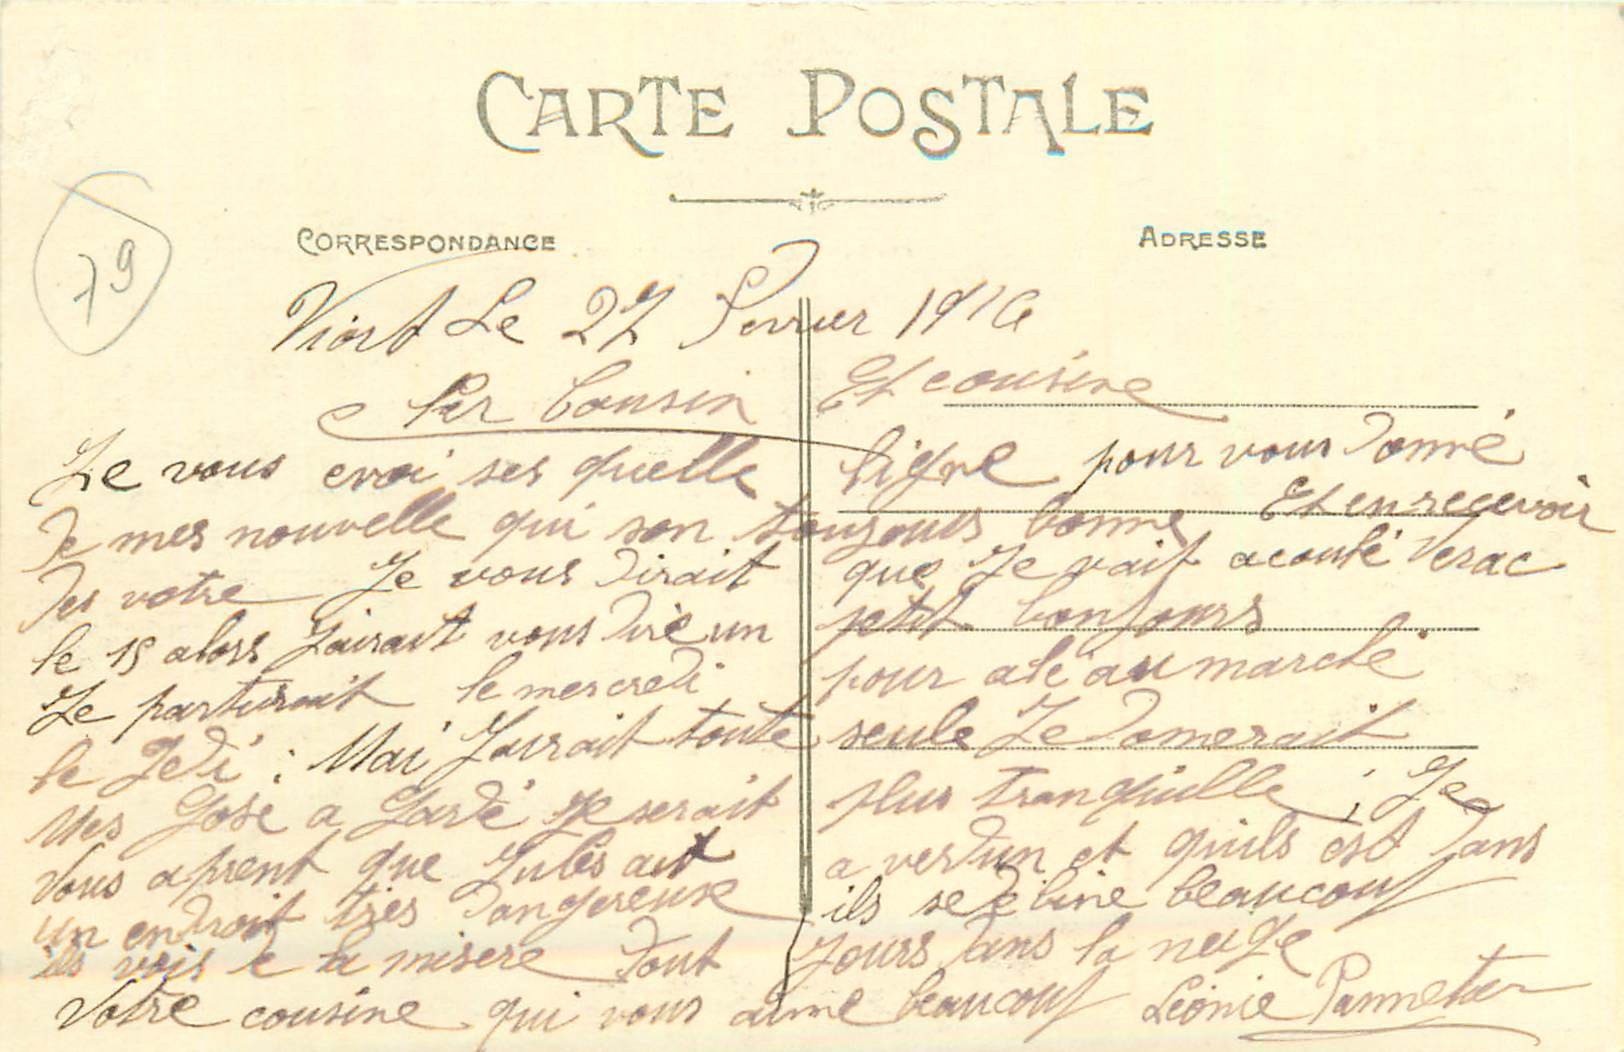 CARTE POSTALE
CORRESPONDANCE
ADRESSE
79
Niort Le 27 Fevrier 1916
Cher Cousin Et cousine
Je vous envoi ses quelle ligne pour vous donné
de mes nouvelle qui son toujours bonne Et en recevoir
des votre Je vous dirait que Je vait acouché verac
le 15 alors J'airait vous dire un petit bonjours
Je partirait le mercredi pour alé au marché
le Jedi : Mai J'aurait toute seule Je
mes Gose a Gardé Je serait plus tranquille ; Je
vous aprent que Jules ait a verdun et quils est dans
un endroit tres dangereuse ils se beaucoup
ils vois de la misere tout Jours dans la neige
Votre cousine qui vous aime beaucoup Léonie Pannetier